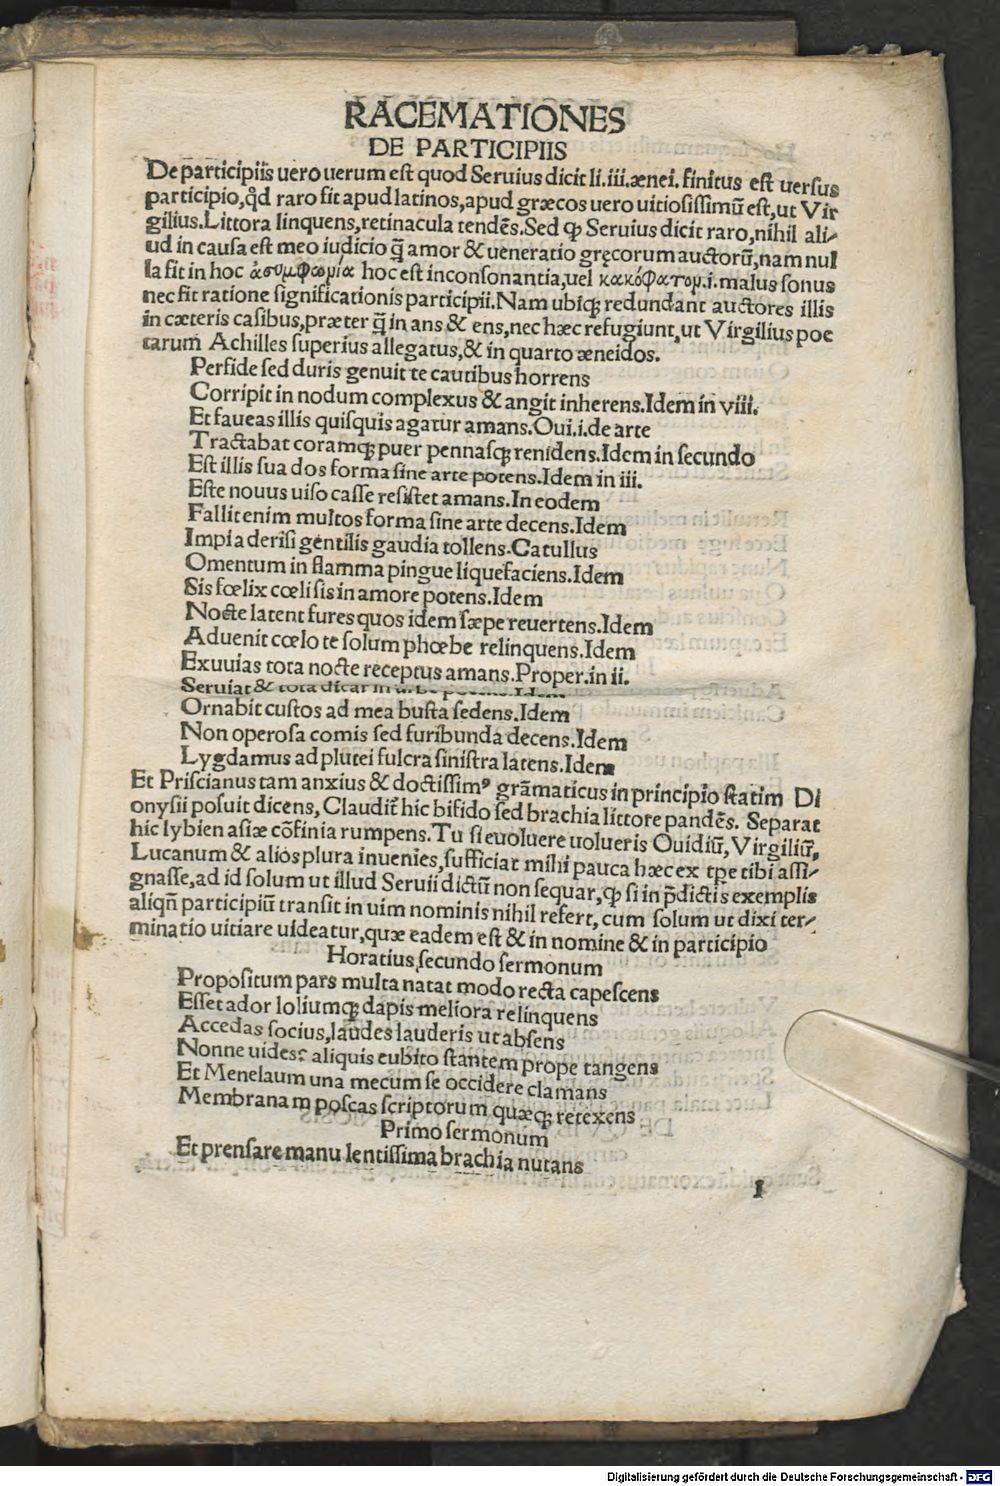 RACEMATIONES
DE PARTICIPIIS
De participiis uero uerum est quod Seruius dicit li.iii.ænei. finitus est uersus
participio,qđ raro fit apud latinos,apud græcos uero uitiosissimū est,ut Vir
gilius.Littora linquens,retinacula tendēs.Sed ꝙ Seruius dicit raro,nihil ali⸗
ud in causa est meo iudicio q̃ amor & ueneratio gręcorum auctorū,nam nul
la fit in hoc ἀσυμφωμία hoc est inconsonantia,uel κακόφατομ.i.malus sonus
nec fit ratione significationis participii.Nam ubiqꝫ redundant auctores illis
in cæteris casibus,præter q̃ in ans & ens,nec hæc refugiunt,ut Virgilius poe
tarum Achilles superius allegatus,& in quarto æneidos.
Perfide sed duris genuit te cautibus horrens
Corripit in nodum complexus & angit inherens.Idem in viii.
Et faueas illis quisquis agatur amans.Oui.i.de arte
Tractabat coramqꝫ puer pennasqꝫ renidens.Idem in secundo
Est illis sua dos forma sine arte potens.Idem in iii.
Este nouus uiso casse resistet amans.In eodem
Fallit enim multos forma sine arte decens.Idem
Impia derisi gentilis gaudia tollens.Catullus
Omentum in flamma pingue liquefaciens.Idem
Sis fœlix cœli sis in amore potens.Idem
Nocte latent fures quos idem sæpe reuertens.Idem
Aduenit cœlo te solum phœbe relinquens.Idem
Exuuias tota nocte receptus amans.Proper.in ii.
Seruiat & tota dicar in urbe potens.Idem
Ornabit custos ad mea busta sedens.Idem
Non operosa comis sed furibunda decens.Idem
Lygdamus ad plutei fulcra sinistra latens.Idem
Et Priscianus tam anxius & doctissimꝰ grāmaticus in principio statim Di
onysii posuit dicens, Claudit̃ hic bifido sed brachia littore pandēs. Separat
hic lybien asiæ cōfinia rumpens.Tu si euoluere uolueris Ouidiū,Virgiliū,
Lucanum & alios plura inuenies,sufficiat mihi pauca hæc ex tp̄e tibi assi⸗
gnasse,ad id solum ut illud Seruii dictū non sequar,ꝙ si in p̄dictis exemplis
aliqn̄ participiū transit in uim nominis nihil refert,cum solum ut dixi ter⸗
minatio uitiare uideatur,quæ eadem est & in nomine & in participio
Horatius secundo sermonum
Propositum pars multa natat modo recta capescens
Esset ador loliumqꝫ dapis meliora relinquens
Accedas socius,laudes lauderis ut absens
Nonne uides? aliquis cubito stantem prope tangens
Et Menelaum una mecum se occidere clamans
Membranam poscas scriptorum quæqꝫ retexens
Primo sermonum
Et prensare manu lentissima brachia nutans
I
Digitalisierung gefördert durch die Deutsche Forschungsgemeinschaft - DFG